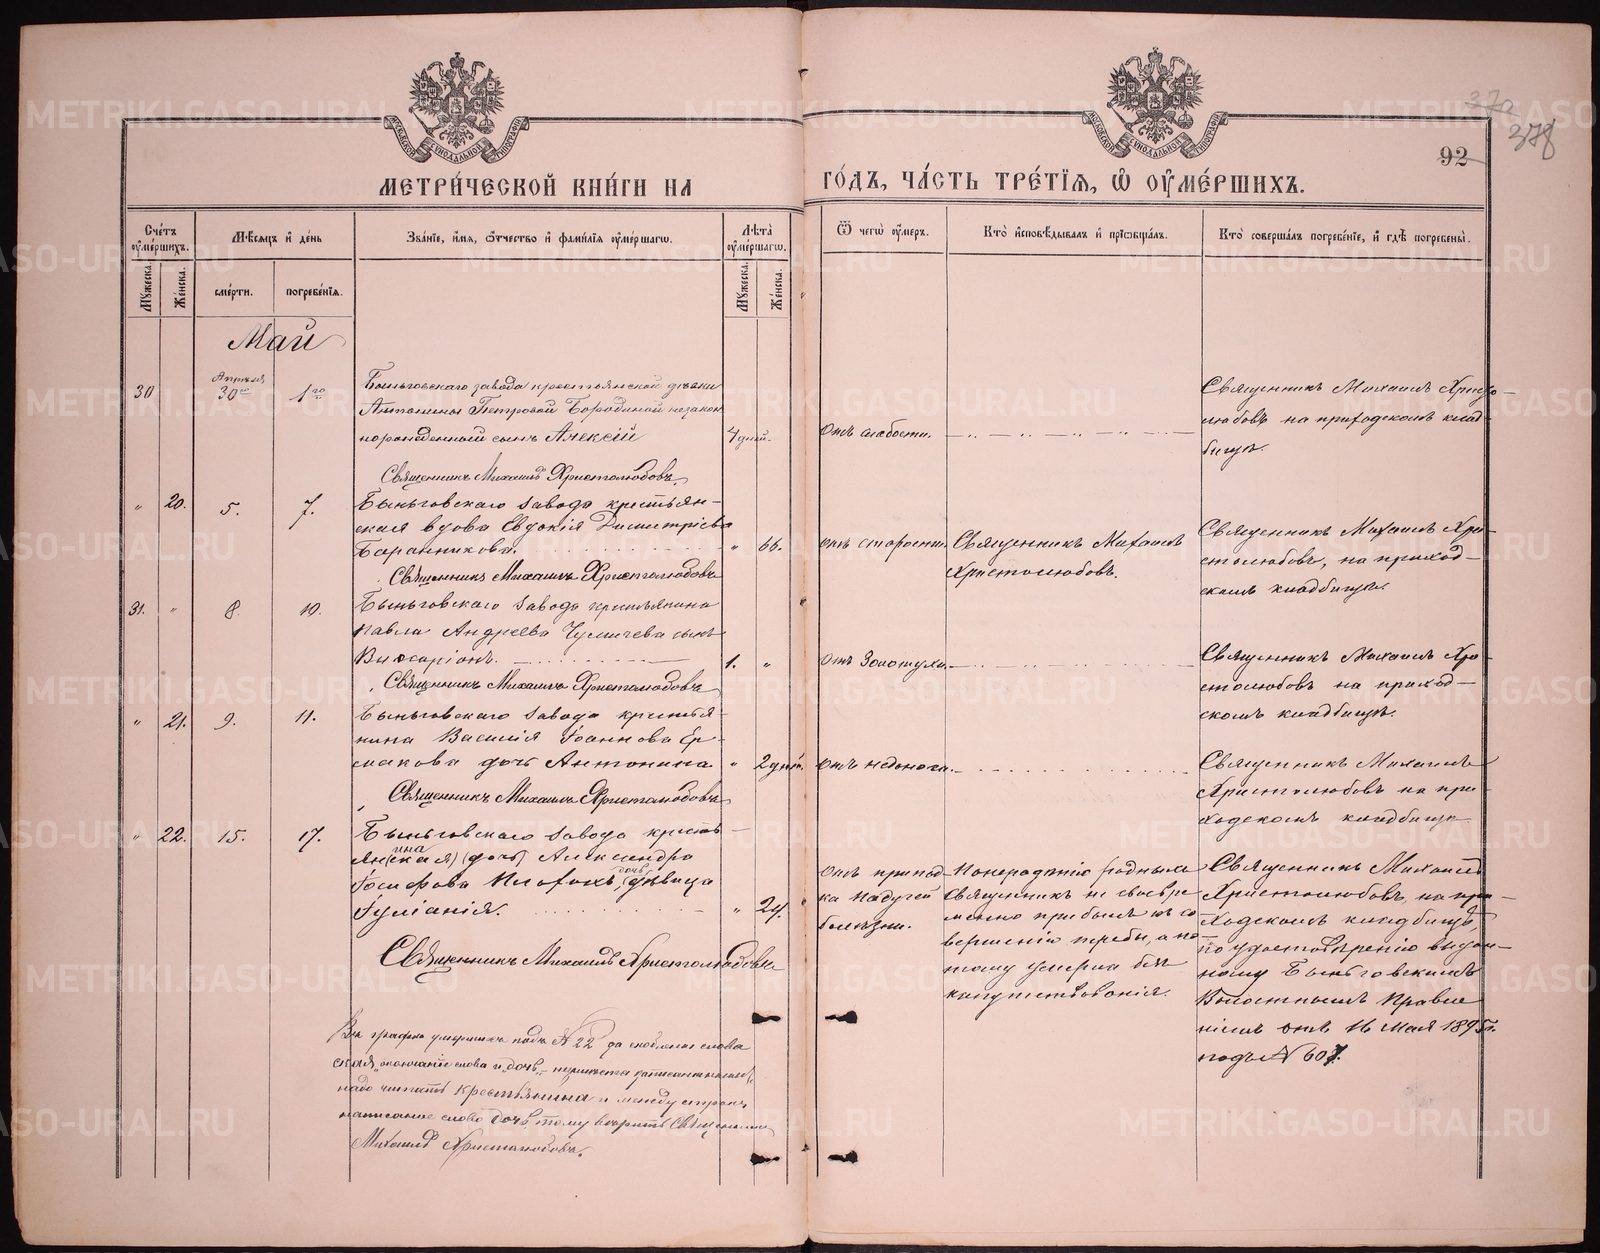 МОСКОВСКОЙ СѴНОДАЛЬНОЙ ТИПОГРАФІИ
МОСКОВСКОЙ СѴНОДАЛЬНОЙ ТИПОГРАФІИ
370
378
92
МЕТРИ́ЧЕСКОЙ КНИ́ГИ НА
ГО́ДЪ, ЧА́СТЬ ТРЕ́ТІѦ, Ѡ҆ ОУ҆МЕ́РШИХЪ.
Сче́тъ оу҆ме́ршихъ.
Мѣ́сѧцъ и҆ де́нь
Зва́ніе, и҆́мѧ, ѻ҆́тчество и҆ фами́лїѧ оу҆ме́ршагѡ.
Лѣ́та оу҆ме́ршагѡ.
Ѿ чегѡ̀ оу҆́меръ.
Кто̀ и҆сповѣ́дывалъ и҆ прїѡбща́лъ.
Кто̀ соверша́лъ погребе́нїе, и҆ гдѣ̀ погребены̀.
Мꙋ́жеска.
Же́нска.
сме́рти.
погребе́нїѧ.
Мꙋ́жеска.
Же́нска.
Май
30
Апрѣля
30го
1го
Быньговскаго завода крестьянской дѣвки
Антонины Петровой Бородиной незакон
норожденный сынъ Алексій
4 дней.
отъ слабости.
Священникъ Михаилъ Христо-
любовъ на приходскомъ клад-
бищѣ.
Священникъ Михаилъ Христолюбовъ
" 20. 5. 7.
Быньговскаго завода крестьян-
ская вдова Евдокія Димитріева
Баранникова.
" 66.
отъ старости.
Священникъ Михаилъ
Христолюбовъ.
Священникъ Михаилъ Хри-
столюбовъ, на приход-
скомъ кладбищѣ.
Священникъ Михаилъ Христолюбовъ
31. " 8. 10.
Быньговскаго завода крестьянина
Павла Андреева Чумичева сынъ
Виссаріонъ.
1. "
отъ золотухи.
Священникъ Михаилъ Хри-
столюбовъ на приход-
скомъ кладбищѣ.
Священникъ Михаилъ Христолюбовъ
" 21. 9. 11.
Быньговскаго завода крестья-
нина Василія Іоаннова Ер-
макова дочь Антонина
" 2 дней.
отъ недоноси.
Священникъ Михаилъ
Христолюбовъ на при-
ходскомъ кладбищѣ
Священникъ Михаилъ Христолюбовъ
" 22. 15. 17.
Быньговскаго завода кресть-
ина
ян(ская) (дочь) Александра
дочь
Іосифова дѣвица
Іуліанія.
" 24.
отъ припад-
ка падучей
болѣзни.
По нерадѣнію родныхъ
Священникъ не своевре
менно прибылъ къ со
вершенію требы, а по-
тому умерла безъ
напутствованія.
Священникъ Михаилъ
Христолюбовъ, на при-
ходскомъ кладбищѣ,
по удостовѣренію выдан-
ному Быньговскимъ
Волостнымъ Правле
ніемъ отъ 16 Мая 1895 г.
подъ № 607.
Священникъ Михаилъ Христолюбовъ
Въ графѣ умершихъ подъ № 22 за скобками слова
ская, окончаніе слова и "дочь"
надо читать крестьянина и между строкъ
написанное слово дочь, тому вѣрить Священникъ
Михаилъ Христолюбовъ.
METRIKI.GASO-URAL.RU